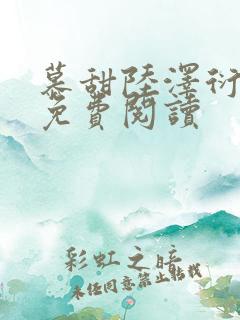 慕甜陸澤衍
免費閱讀
彩虹之暗
未經同意禁止轉載